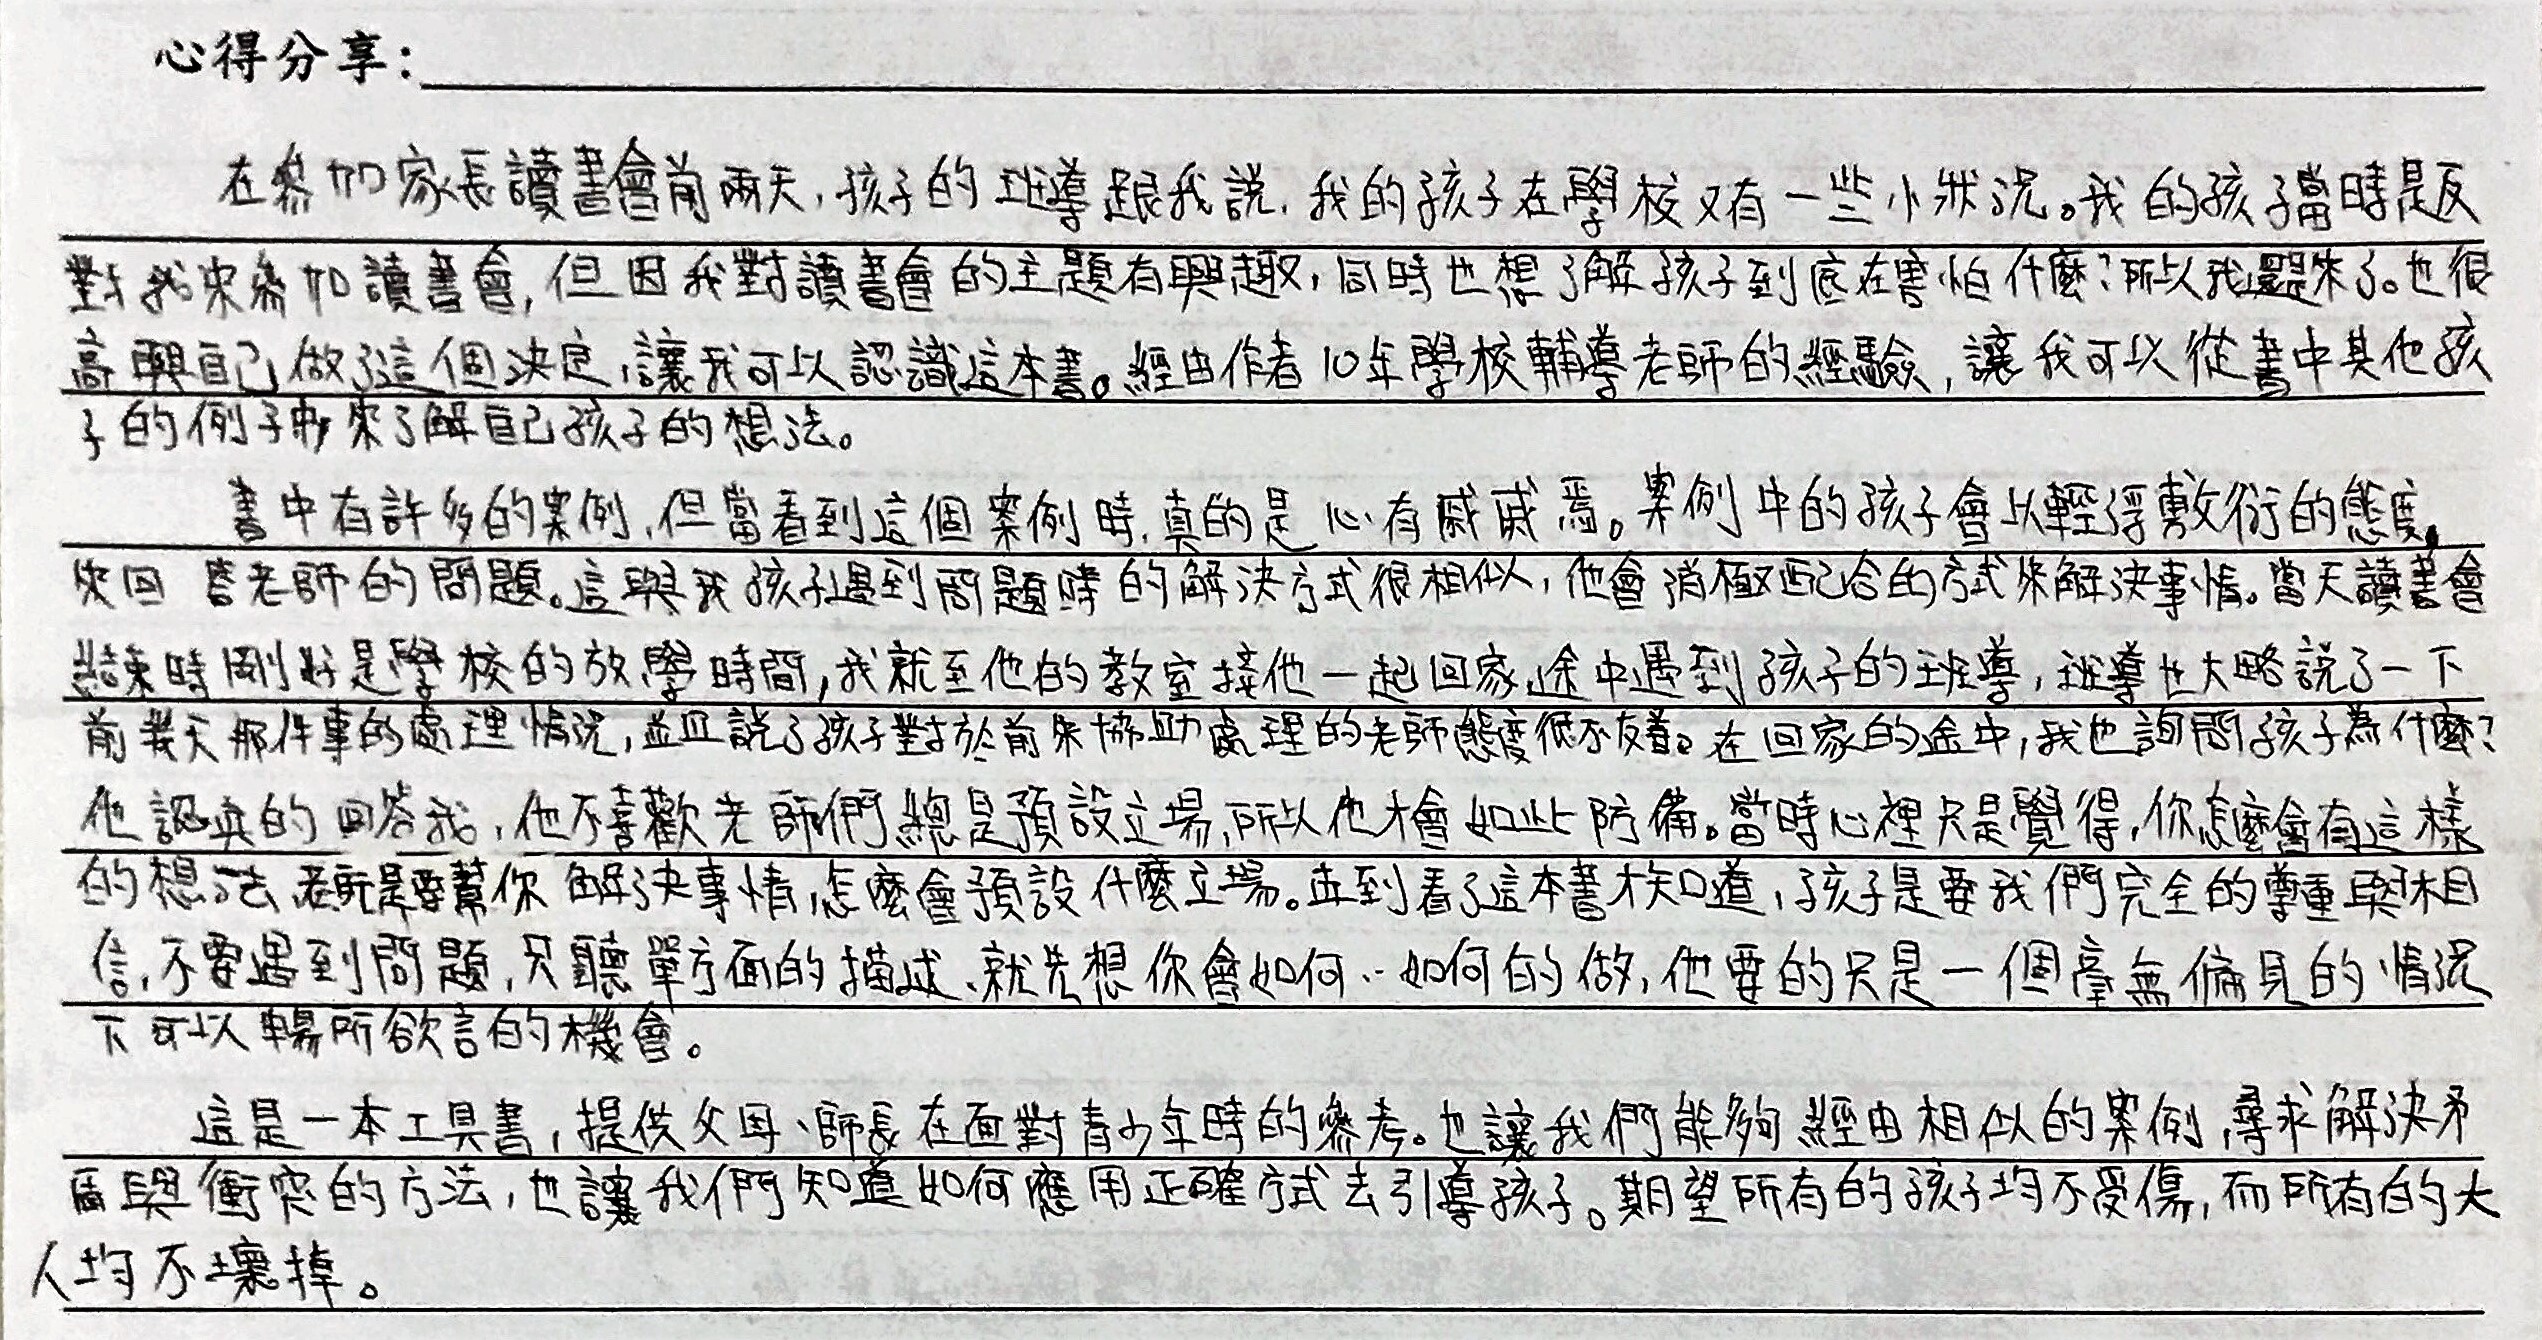 心得分享：
在參加家長讀書會前兩天，孩子的班導跟我說，我的孩子在學校又有一些小狀況。我的孩子當時是反
對我來參加讀書會，但因我對讀書會的主題有興趣，同時也想了解孩子到底在害怕什麼？所以我還是來了。也很
高興自己做了這個決定，讓我可以認識這本書。經由作者10年學校輔導老師的經驗，讓我可以從書中其他孩
子的例子中，來了解自己孩子的想法。
書中有許多的案例，但當看到這個案例時，真的是心有戚戚焉。案例中的孩子會以輕浮敷衍的態度，
來回答老師的問題。這與我孩子遇到問題時的解決方式很相似，他會消極配合的方式來解決事情。當天讀書會
結束時剛好是學校的放學時間，我就至他的教室接他一起回家，途中遇到孩子的班導，班導也大略說了一下
前幾天那件事的處理情況，並且說了孩子對於前來協助處理的老師態度很不友善。在回家的途中，我也詢問孩子為什麼？
他認真的回答我，他不喜歡老師們總是預設立場，所以他才會如此防備。當時心裡只是覺得，你怎麼會有這樣
的想法，老師是要幫你解決事情，怎麼會預設什麼立場。直到看了這本書才知道，孩子是要我們完全的尊重與相
信，不要遇到問題，只聽單方面的描述、就先想你會如何‥如何的做，他要的只是一個毫無偏見的情況
下可以暢所欲言的機會。
這是一本工具書，提供父母、師長在面對青少年時的參考。也讓我們能夠經由相似的案例，尋求解決矛
盾與衝突的方法，也讓我們知道如何應用正確方式去引導孩子。期望所有的孩子均不受傷，而所有的大
人均不壞掉。